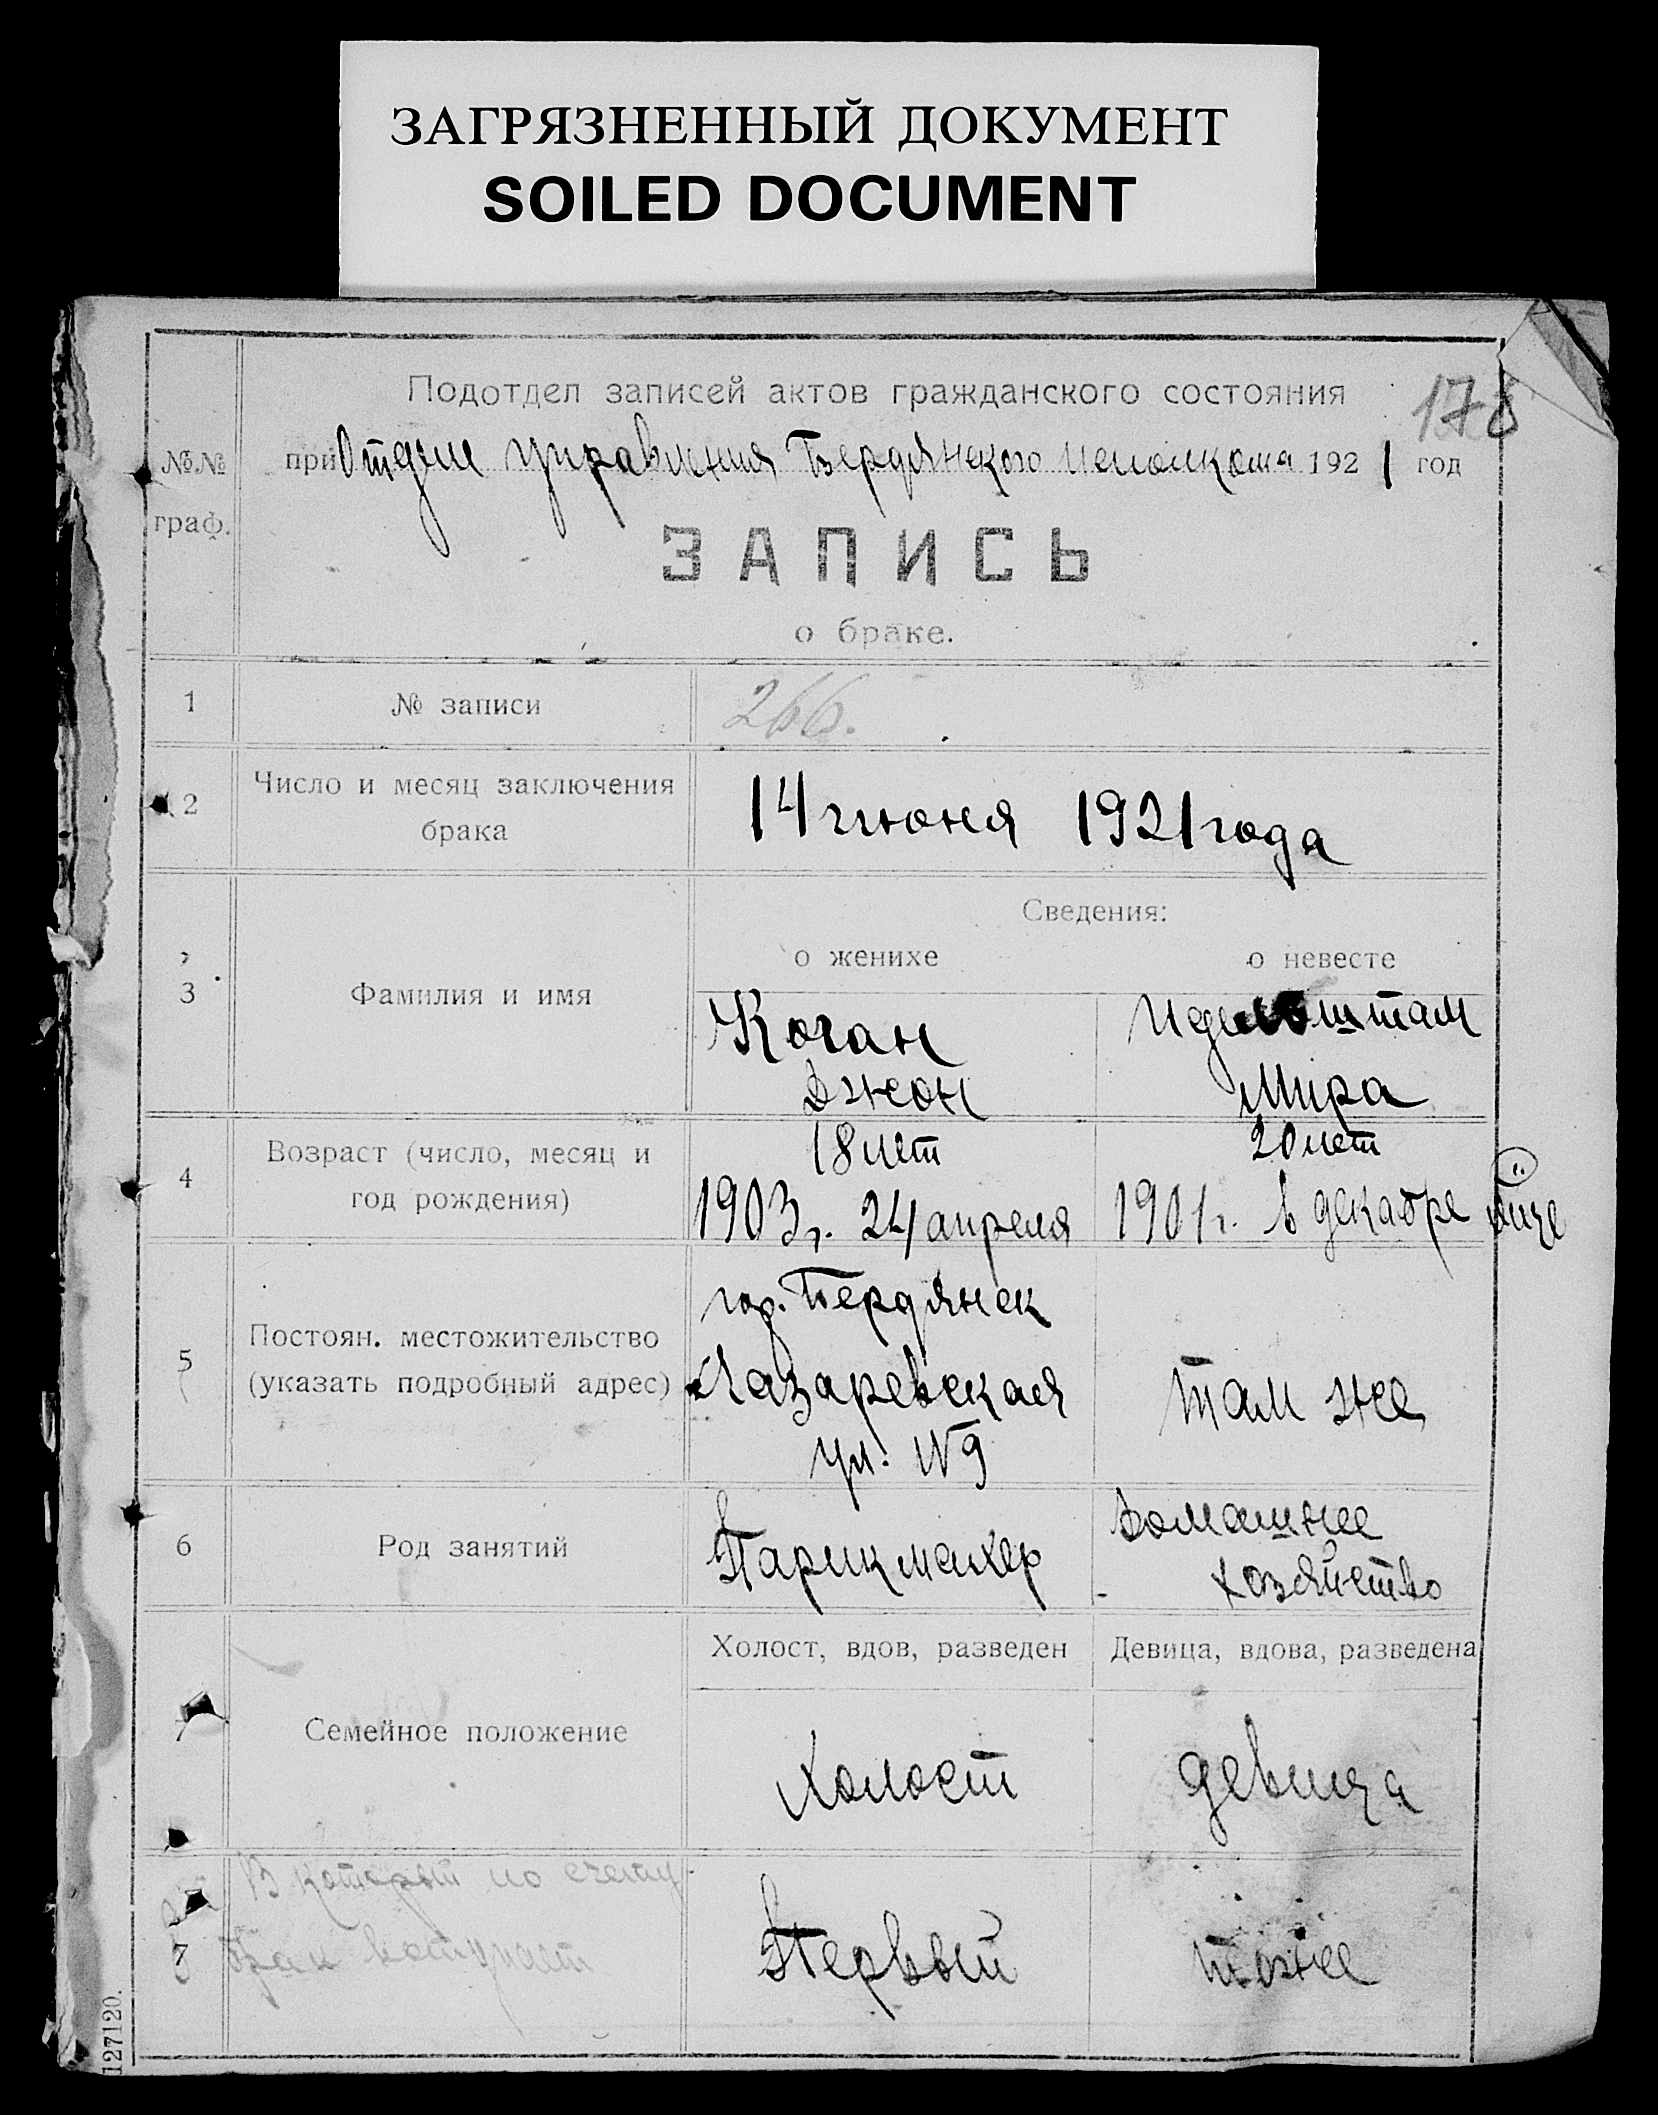 ЗАГРЯЗНЕННЫЙ ДОКУМЕНТ
SOILED DOCUMENT
178
№№ граф.
Подотдел записей актов гражданского состояния
при Отделе управления Бердянского исполкома 1921 год
ЗАПИСЬ
о браке.
1 № записи 266.
2 Число и месяц заключения брака
14 июня 1921 года
Сведения:
о женихе о невесте
3 Фамилия и имя
Коган
Джон
Мира
4 Возраст (число, месяц и год рождения)
18 лет
1903 г. 24 апреля
20 лет
1901 г. в декабре м-це
5 Постоян. местожительство (указать подробный адрес)
гор. Бердянск
Лазаревская
ул. №9
там же
6 Род занятий
Парикмахер
Домашнее
хозяйство
Холост, вдов, разведен Девица, вдова, разведена
7 Семейное положение
Холост девица
В который по счету
брак вступает
Первый тоже
127120.